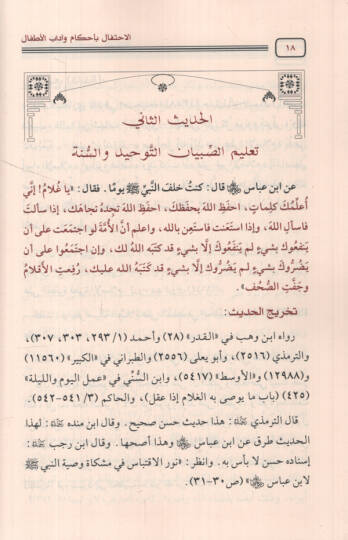 الاحتفال بأحكام وآداب الأطفال
١٨
الحديث الثاني
تعليم الصبيان التوحيد والسُّنة
عن ابن عباس ﷺ قال: كنتُ خلفَ النبيِّ ﷺ يومًا. فقال: «يا غُلامُ! إنِّي
أُعلِّمُكَ كلِماتٍ، احفَظِ اللهَ يحفَظْكَ، احفَظِ اللهَ تجِدْهُ تجاهَك، إذا سألتَ
فاسألِ اللهَ، وإذا استَعَنت فاستَعِن بالله، واعلم أنَّ الأُمَّةَ لو اجتمَعَت على أن
يَنفعوكَ بشيءٍ لم يَنفَعُوكَ إلَّا بشيءٍ قد كتبَه اللهُ لك، وإن اجتمَعُوا على أن
يَضُرُّوكَ بشيءٍ لم يَضُرُّوكَ إلَّا بشيءٍ قد كَتَبَهُ الله عليك، رُفِعتِ الأقلامُ
وجَفَّتِ الصُّحُف».
تخريج الحديث:
رواه ابن وهب في «القدر» (٢٨) وأحمد (٢٩٣/١، ٣٠٣، ٣٠٧)،
والترمذي (٢٥١٦)، وأبو يعلى (٢٥٥٦) والطبراني في «الكبير» (١١٥٦٠)
(١٢٩٨٨) و«الأوسط» (٥٤١٧)، وابن السُّنِّي في «عمل اليوم والليلة»
(٤٢٥) (باب ما يوصى به الغلام إذا عقل)، والحاكم (٥٤١/٣-٥٤٢).
قال الترمذي : هذا حديث حسن صحيح. وقال ابن منده : لهذا
الحديث طرق عن ابن عباس وهذا أصحها. وقال ابن رجب :
إسناده حسن لا بأس به. وانظر: «نور الاقتباس في مشكاة وصية النبي ﷺ
لابن عباس » (ص٣٠-٣١).